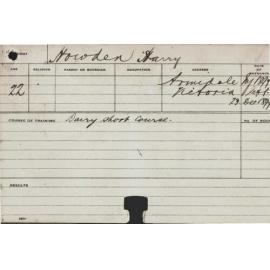 Howden Harry
AGE RELIGION PARENT OR GUARDIAN OCCUPATION ADDRESS DATE OF
22 Armidale
Victoria
23 Dec
COURSE OF TRAINING Dairy short course. NO. OF
RESULTS